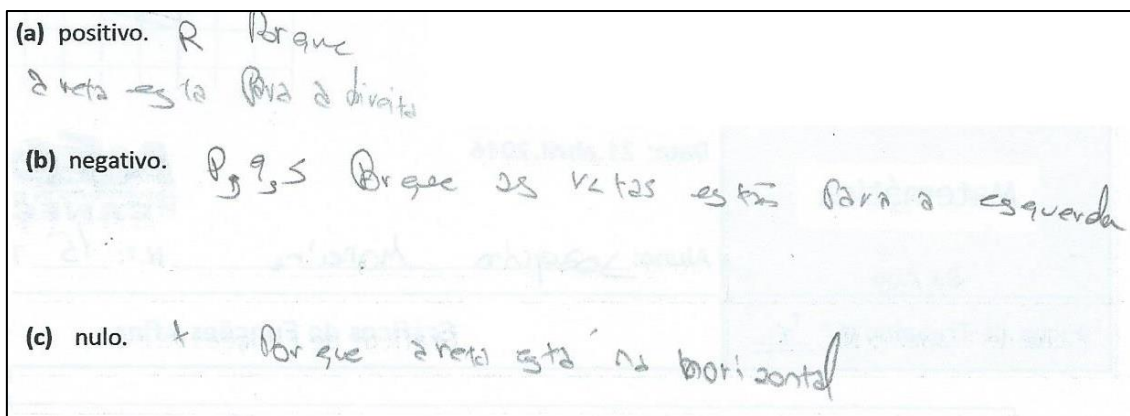 (a) positivo. R Porque
a reta esta para a direita
(b) negativo. P, q, s Porque as retas estão para a esquerda
(c) nulo. t Porque a reta está na horizontal